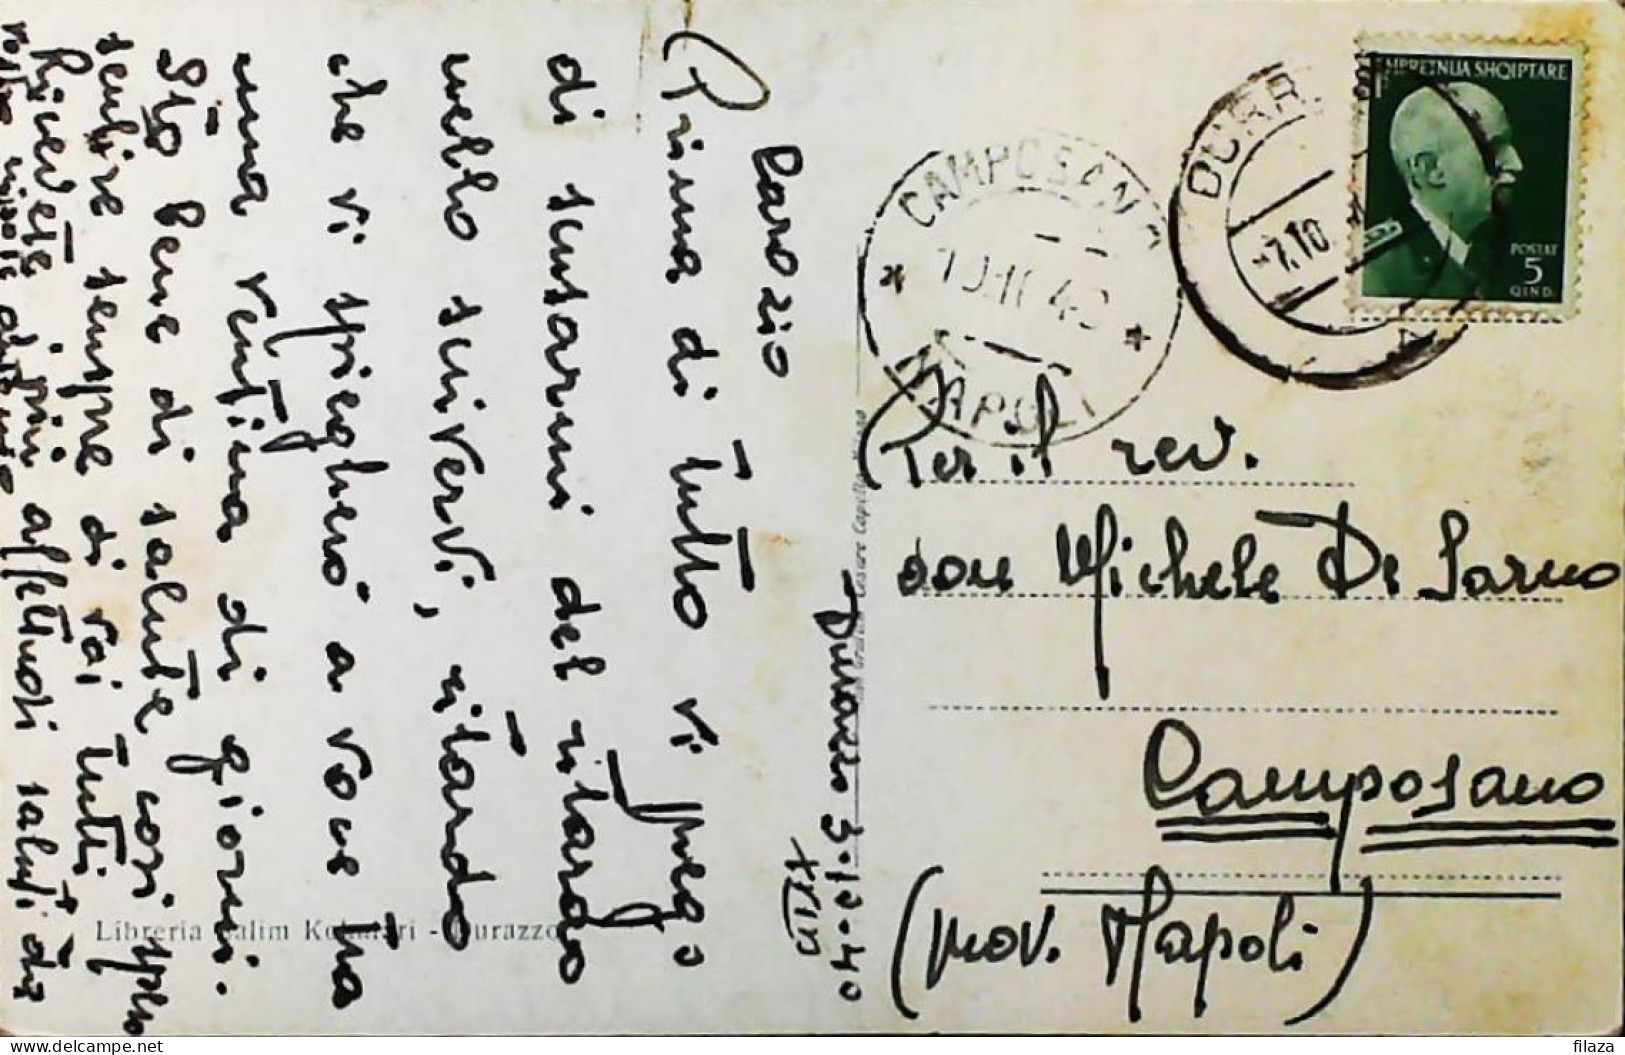 Durazzo 3.10.40
XVIII
Caro zio
Prima di tutto vi prego
di scusarmi del ritardo
nello scrivervi, ritardo
che vi spiegherò a voce tra
una ventina di giorni.
Sto bene di salute così spero
sentire sempre di voi tutti
Ricevete i più affettuosi saluti dal
vostro nipote
Libreria Salim - Durazzo
MBRETNIJA SHQIPTARE
POSTAT
5
QIND.
DURR
7.10
CAMPOSANO
NAPOLI
Per il rev.
don Michele De Sarno
Camposano
(prov. Napoli)
filaza